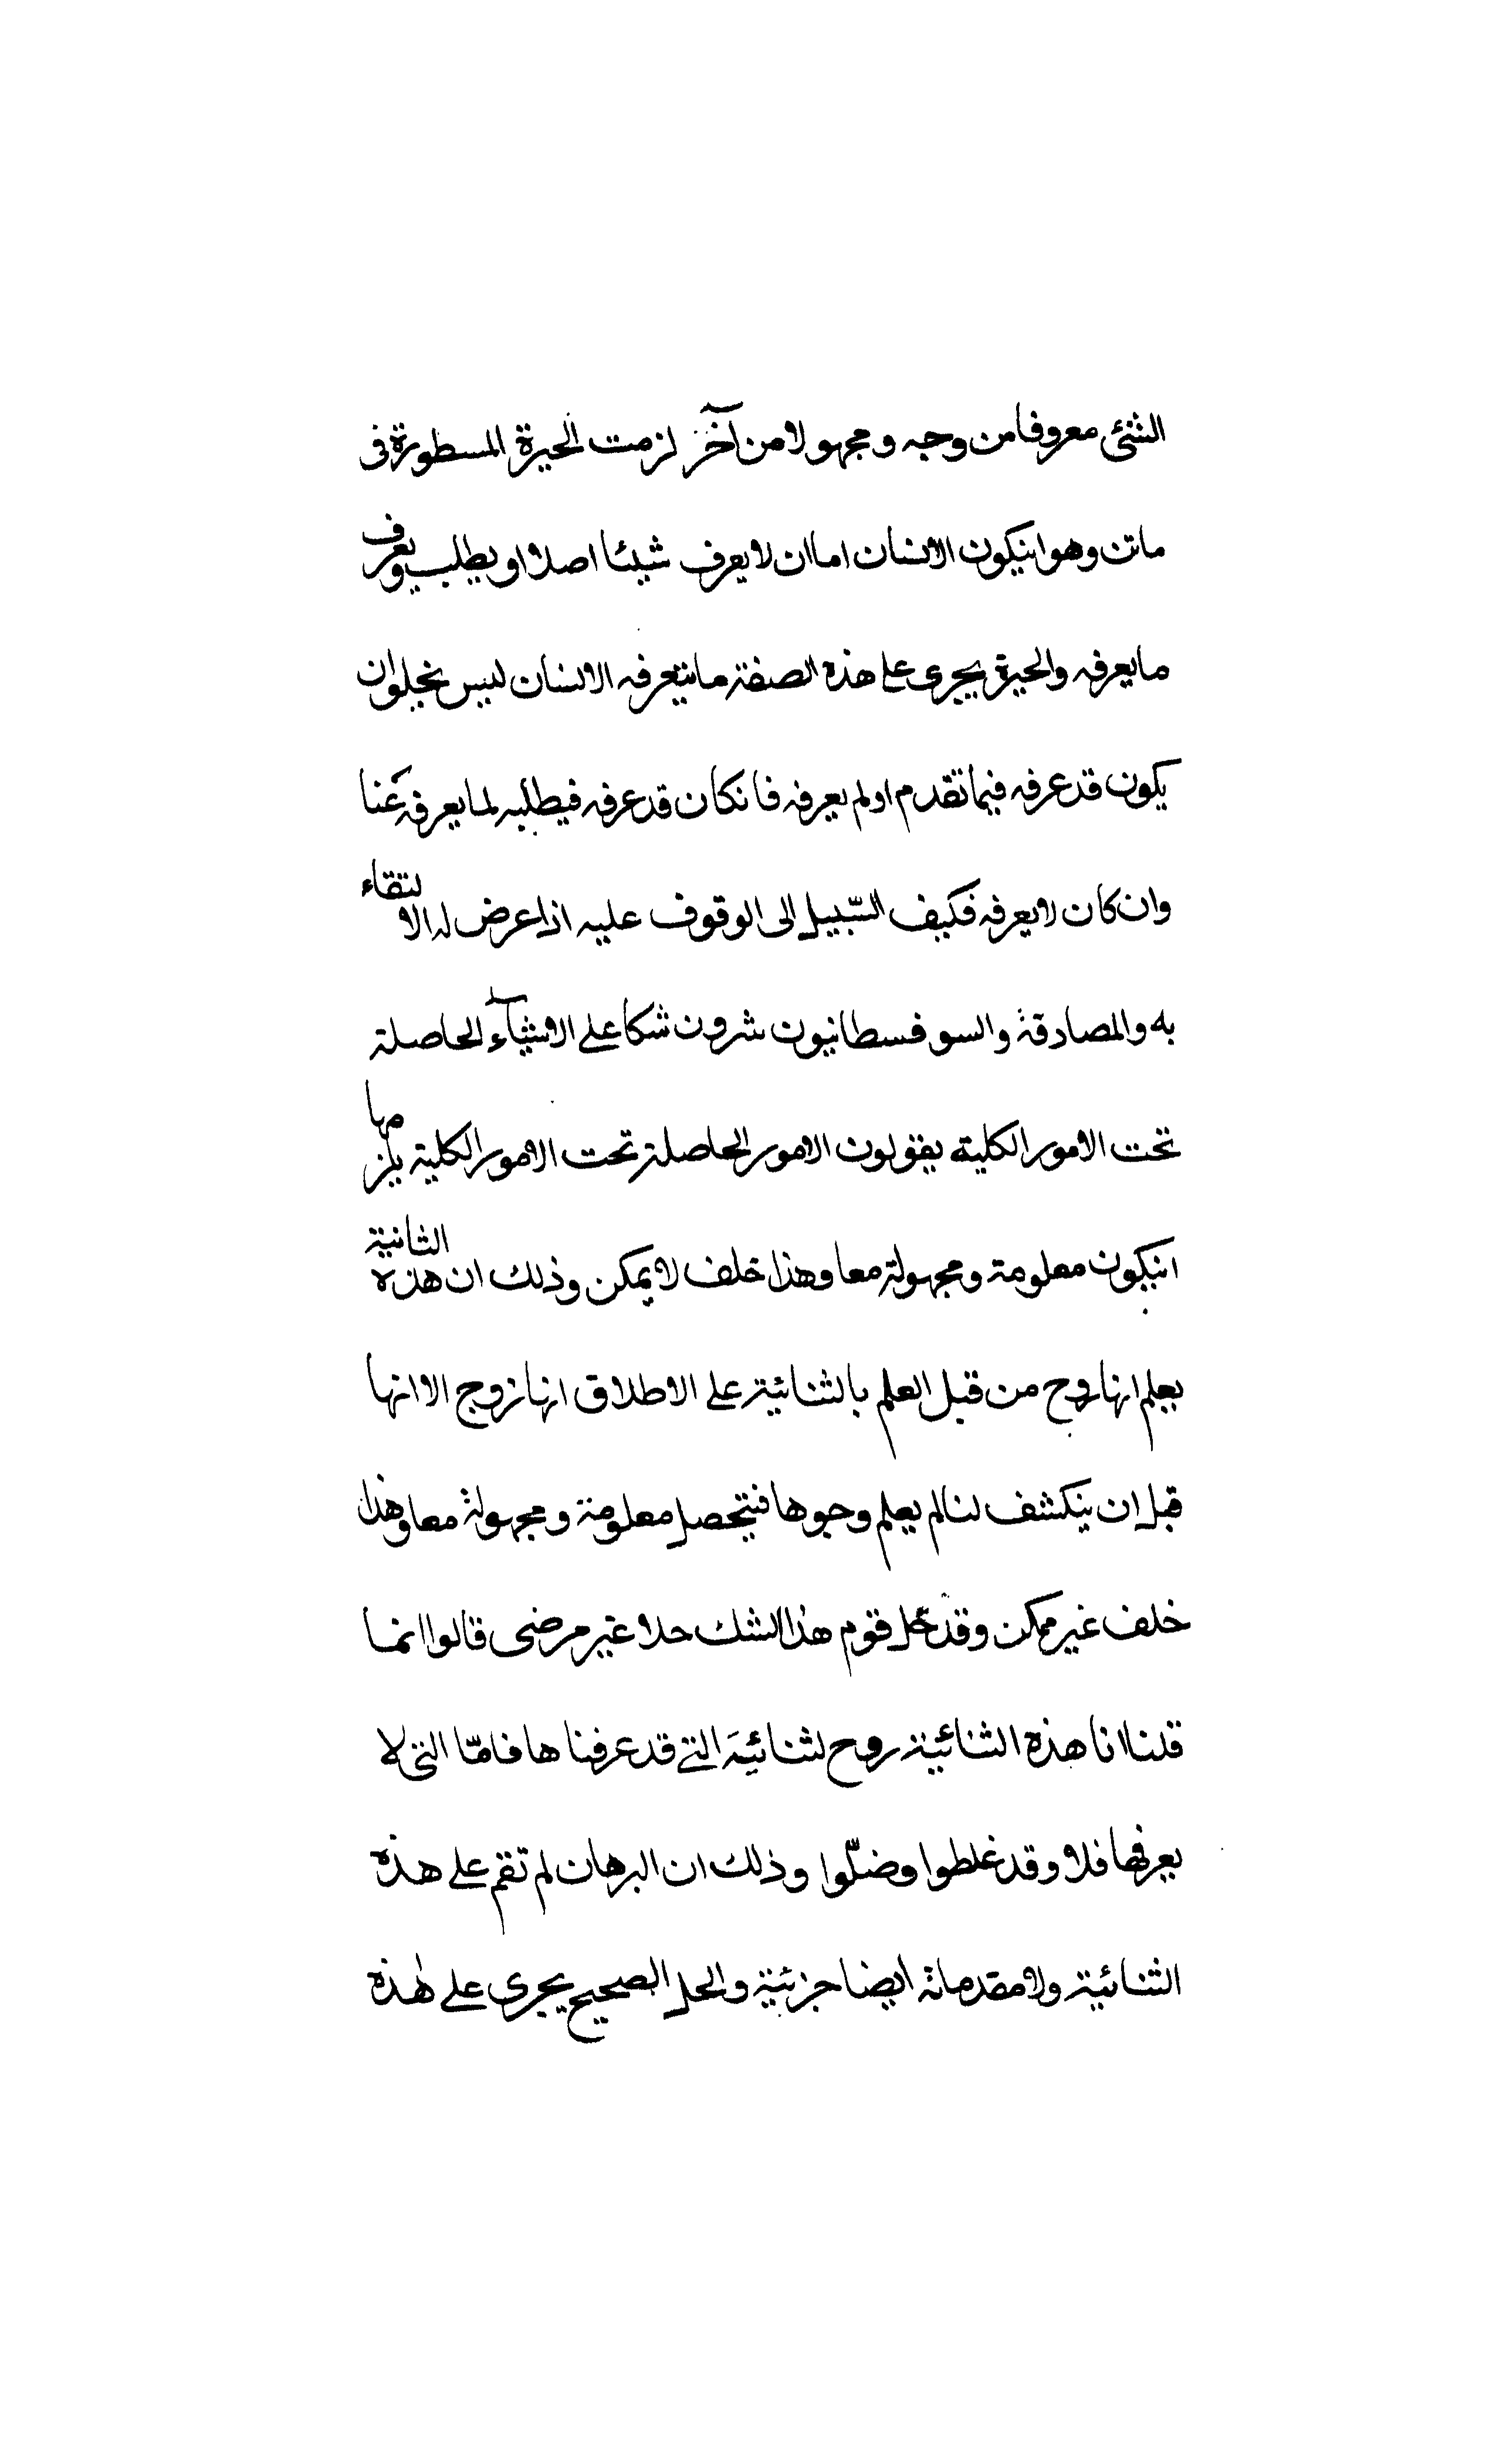 الشئ معروفا من وجه ومجهولا من آخر لزمت الحيرة المسطورة فى
مانن وهو انيكون الانسان اما ان لا يعرف شيئا اصلا او يطلب ويعرف
ما يعرفه والحيرة يجرى على هذه الصفة ما يتعرفه الانسان ليس يخلو ان
يكون قد عرفه فيما تقدم او لم يعرفه فانكان قد عرفه فيطلبه لما يعرفه عنا
وان كان لا يعرفه فكيف السّبيل الى الوقوف عليه اذا عرض له الالتقاء
به والمصادقة والسوفسطانيون شرون شكا على الاشيآء الحاصلة
تحت الامور الكلية يقولون الامور الحاصلة تحت الامور الكلية يلزمها
انيكون معلومة ومجهولة معا وهذا خلف لا يمكن وذلك ان هذه الثانية
يعلم انها روح من قبل العلم بالثنائية على الاطلاق انها زوج الا انها
قبل ان ينكشف لنا لم يعلم وجوها فيتحصل معلومة ومجهولة معا وهذا
خلف غير ممكن وقد حلّ قوم هذا الشك حلا غير مرضى قالوا انما
قلنا انا هذه الثنائية روح لثنائية التى قد عرفناها فامّا التى لا
يعرفها فلا وقد غلطوا وضلّوا وذلك ان البرهان لم تقم على هذه
الثنائية ولا مقدماته ايضا جزئية والحل الصحيح يجرى على هذه